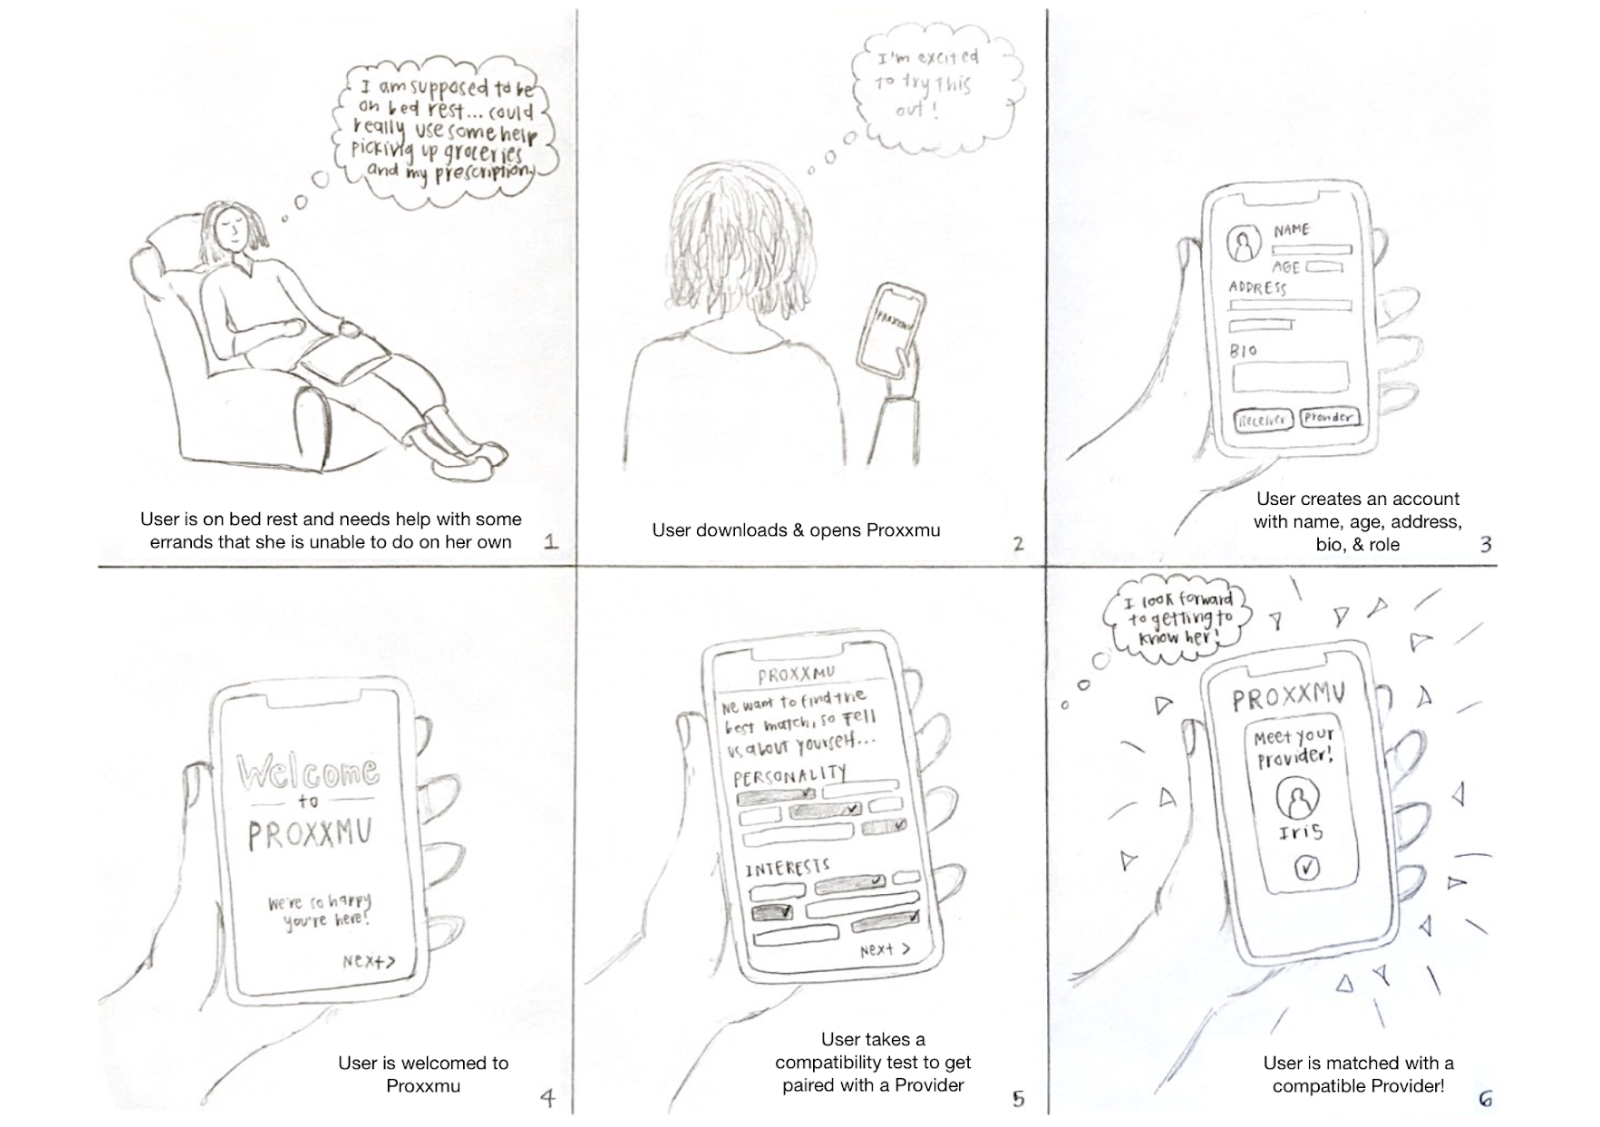 I am supposed to be
on bed rest... could
really use some help
picking up groceries
and my prescription
User is on bed rest and needs help with some
errands that she is unable to do on her own
1
I'm excited
to try this
out!
PROXXMU
User downloads & opens Proxxmu
2
NAME
AGE
ADDRESS
BIO
Receiver Provider
User creates an account
with name, age, address,
bio, & role
3
Welcome
to
PROXXMU
We're so happy
you're here!
Next>
User is welcomed to
Proxxmu
4
PROXXMU
We want to find the
best match, so tell
us about yourself...
PERSONALITY
INTERESTS
Next >
User takes a
compatibility test to get
paired with a Provider
5
I look forward
to getting to
know her!
PROXXMU
Meet your
Provider!
Iris
User is matched with a
compatible Provider!
6